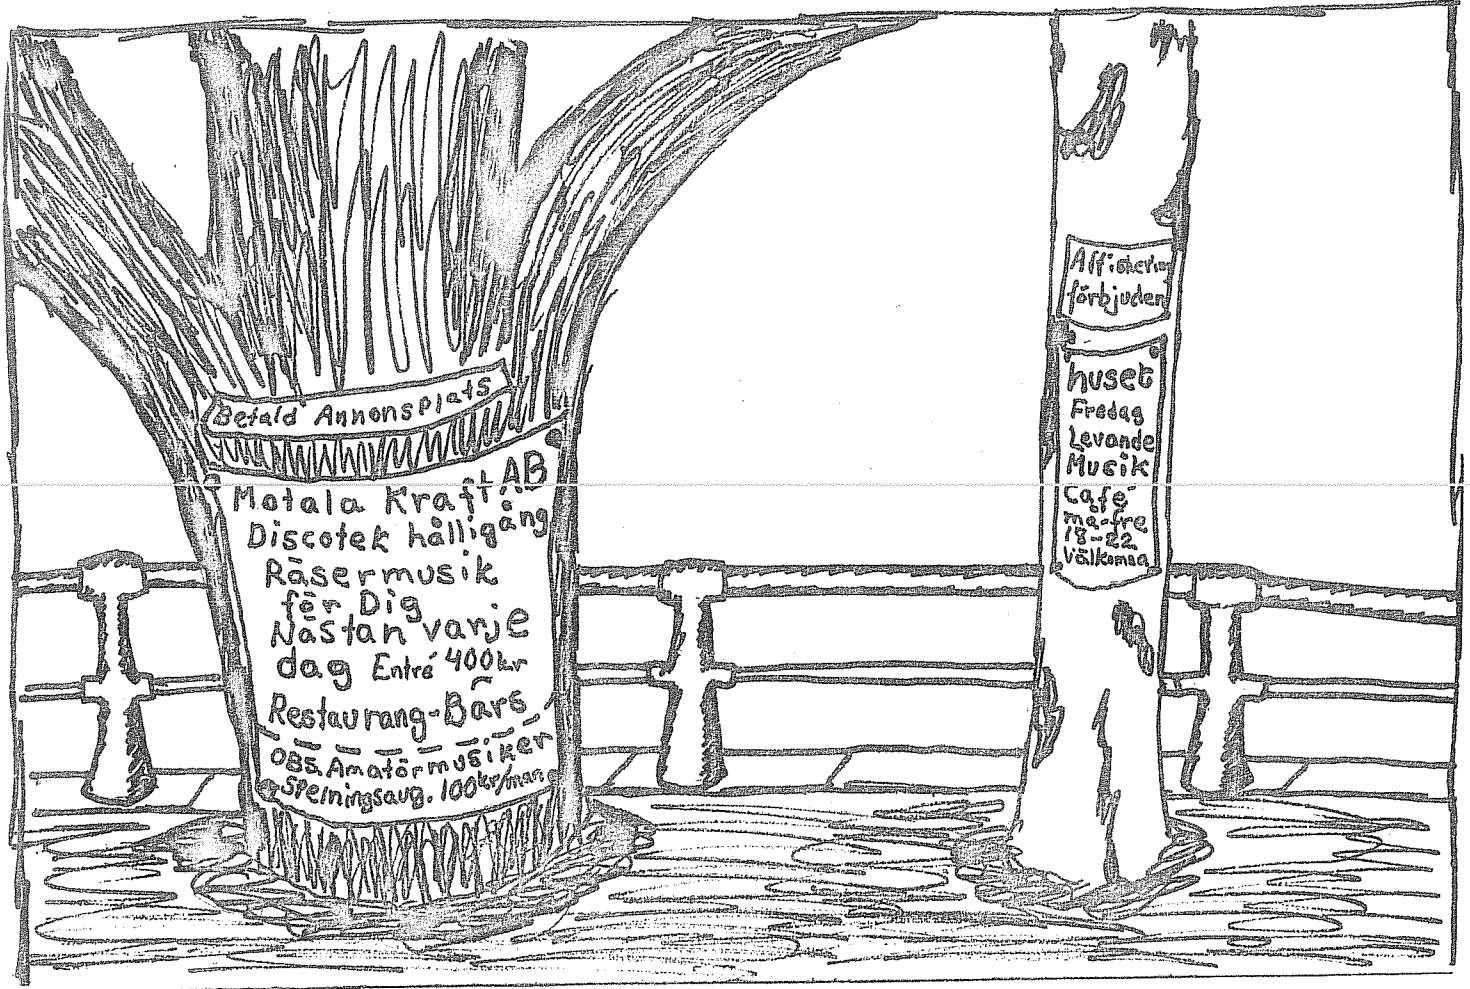 Betald Annonsplats
Motala Kraft AB
Discotek hålligång
Räsermusik
för Dig
Nästan varje
dag Entré 400kr
Restaurang-Bars
OBS. Amatörmusiker
Spelningsavg. 100kr/man
Affischering
förbjuden
huset
Fredag
Levande
Musik
Café
må-fre
18-22
Välkomna